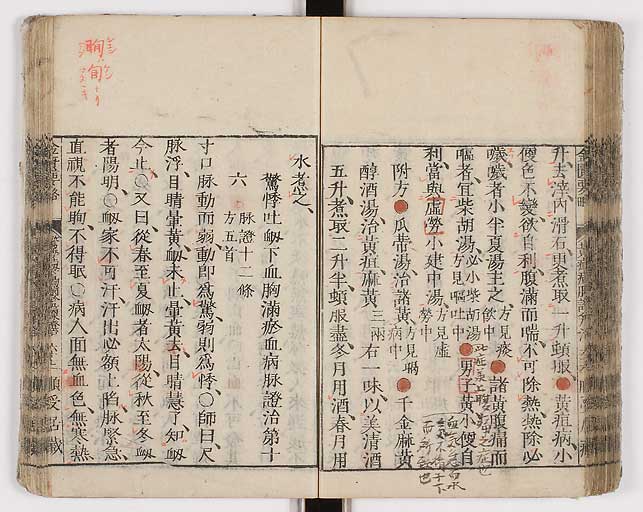 升去滓內滑石煮取一升頓服●黃疸病小
便色不變欲自利腹滿而喘不可除熱熱除必
噦噦者小半夏湯主之方見痰飲中●諸黃腹痛而
嘔者宜柴胡湯必小柴胡湯方見嘔吐中●男子黃小便自
利當與虛勞小建中湯方見虛勞中
附方●瓜蒂湯治諸黃方見暍病中●千金麻黃
醇酒湯治黃疸麻黃三兩右一味以美清酒
五升煮取二升半頓服盡冬月用酒春月用
水煮之
驚悸吐衂下血胸滿瘀血病脉證治第十
六 脉證十二條方五首
寸口脉動而弱動卽為驚弱則為悸○師曰尺
脉浮目睛暈黃衂未止暈黃去目睛慧了知衂
今止○又曰從春至夏衂者太陽從秋至冬衂
者陽明○衂家不可汗汗出必額上陷脉緊急
直視不能眴不得眠○病人面無血色無寒熱
眴
旬